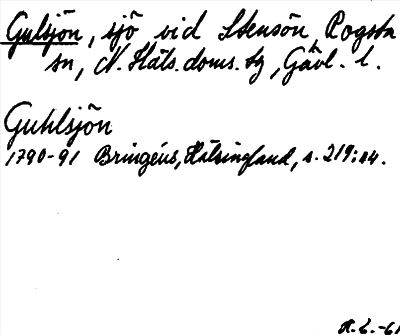 Gulsjön, sjö vid Stensön, Rogsta
sn, N. Häls. doms. tg, Gävl. l.
Guhlsjön
1790-91 Bringéus, Hälsingland, s. 219:14.
R.L.-61